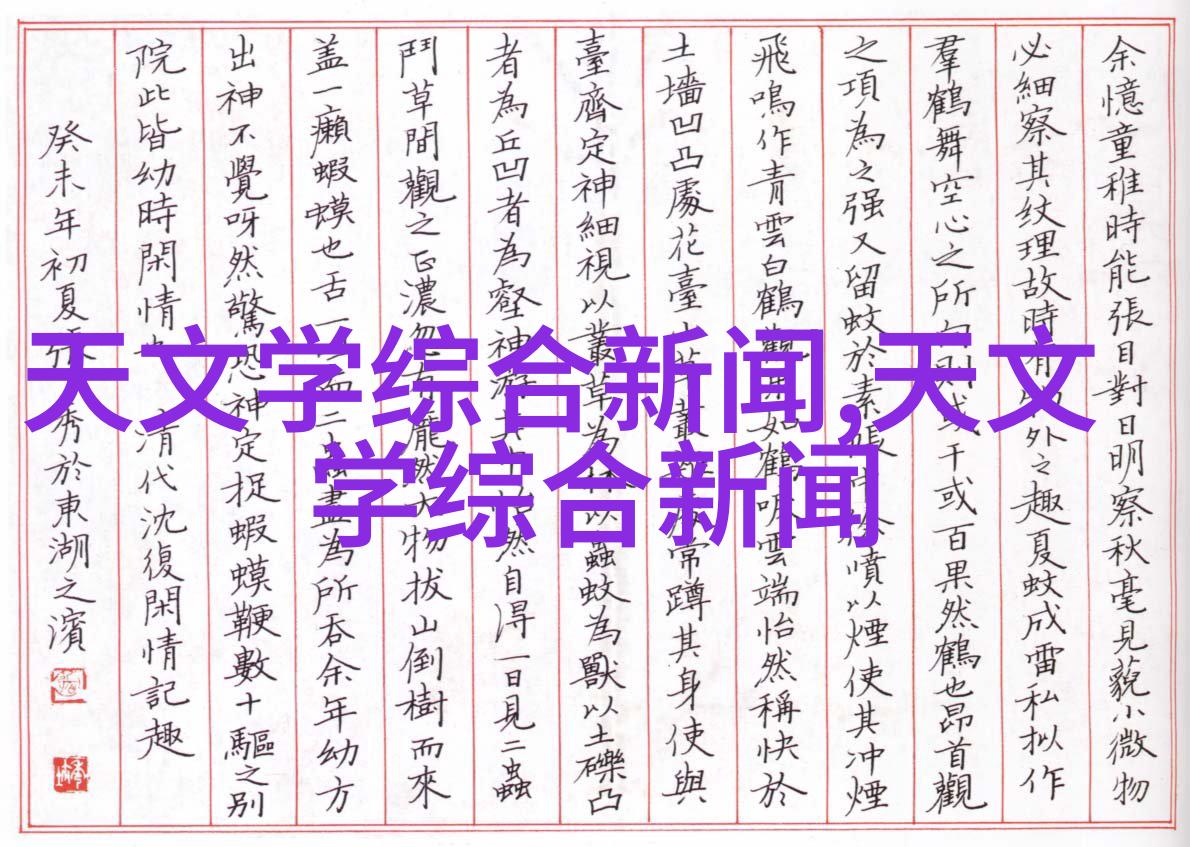 余憶童稚時能張目對日明察秋毫見藐小微物
必細察其纹理故時有物外之趣夏蚊成雷私拟作
羣鶴舞空心之所向則或千或百果然鶴也昂首觀
之項為之强又留蚊於素帳中徐噴以煙使其冲煙
飛鳴作青雲白鶴觀如鶴唳雲端怡然稱快於
土墻凹凸處花臺小草叢雜處常蹲其身使與
臺齊定神細視以叢草為林以蟲蚊為獸以土礫凸
者為丘凹者為壑神游其中怡然自得一日見二蟲
鬥草間觀之正濃忽有龐然大物拔山倒樹而來
盖一癩蝦蟆也舌一吐而二虫盡為所吞余年幼方
出神不覺呀然驚恐神定捉蝦蟆鞭數十驅之别
院此皆幼時閑情也 清代沈復閑情記趣
癸未年初夏張秀於東湖之濱
天文学综合新闻,天文
学综合新闻